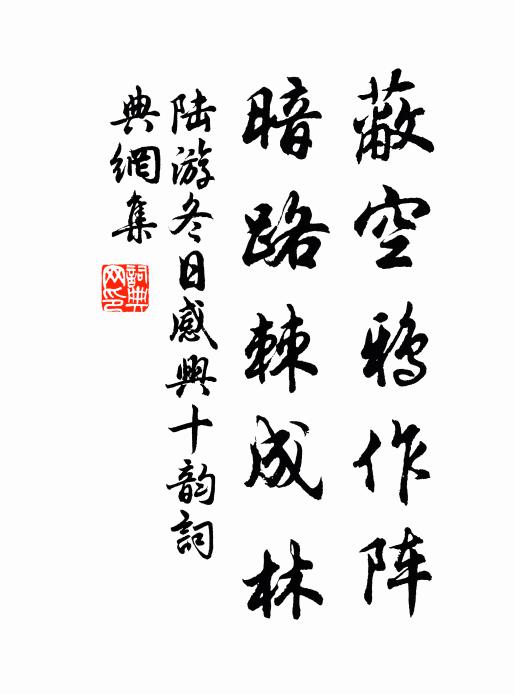 蔽空鸦作阵
暗路棘成林
陆游冬日感興十韵詞
典網集
詞典
网印